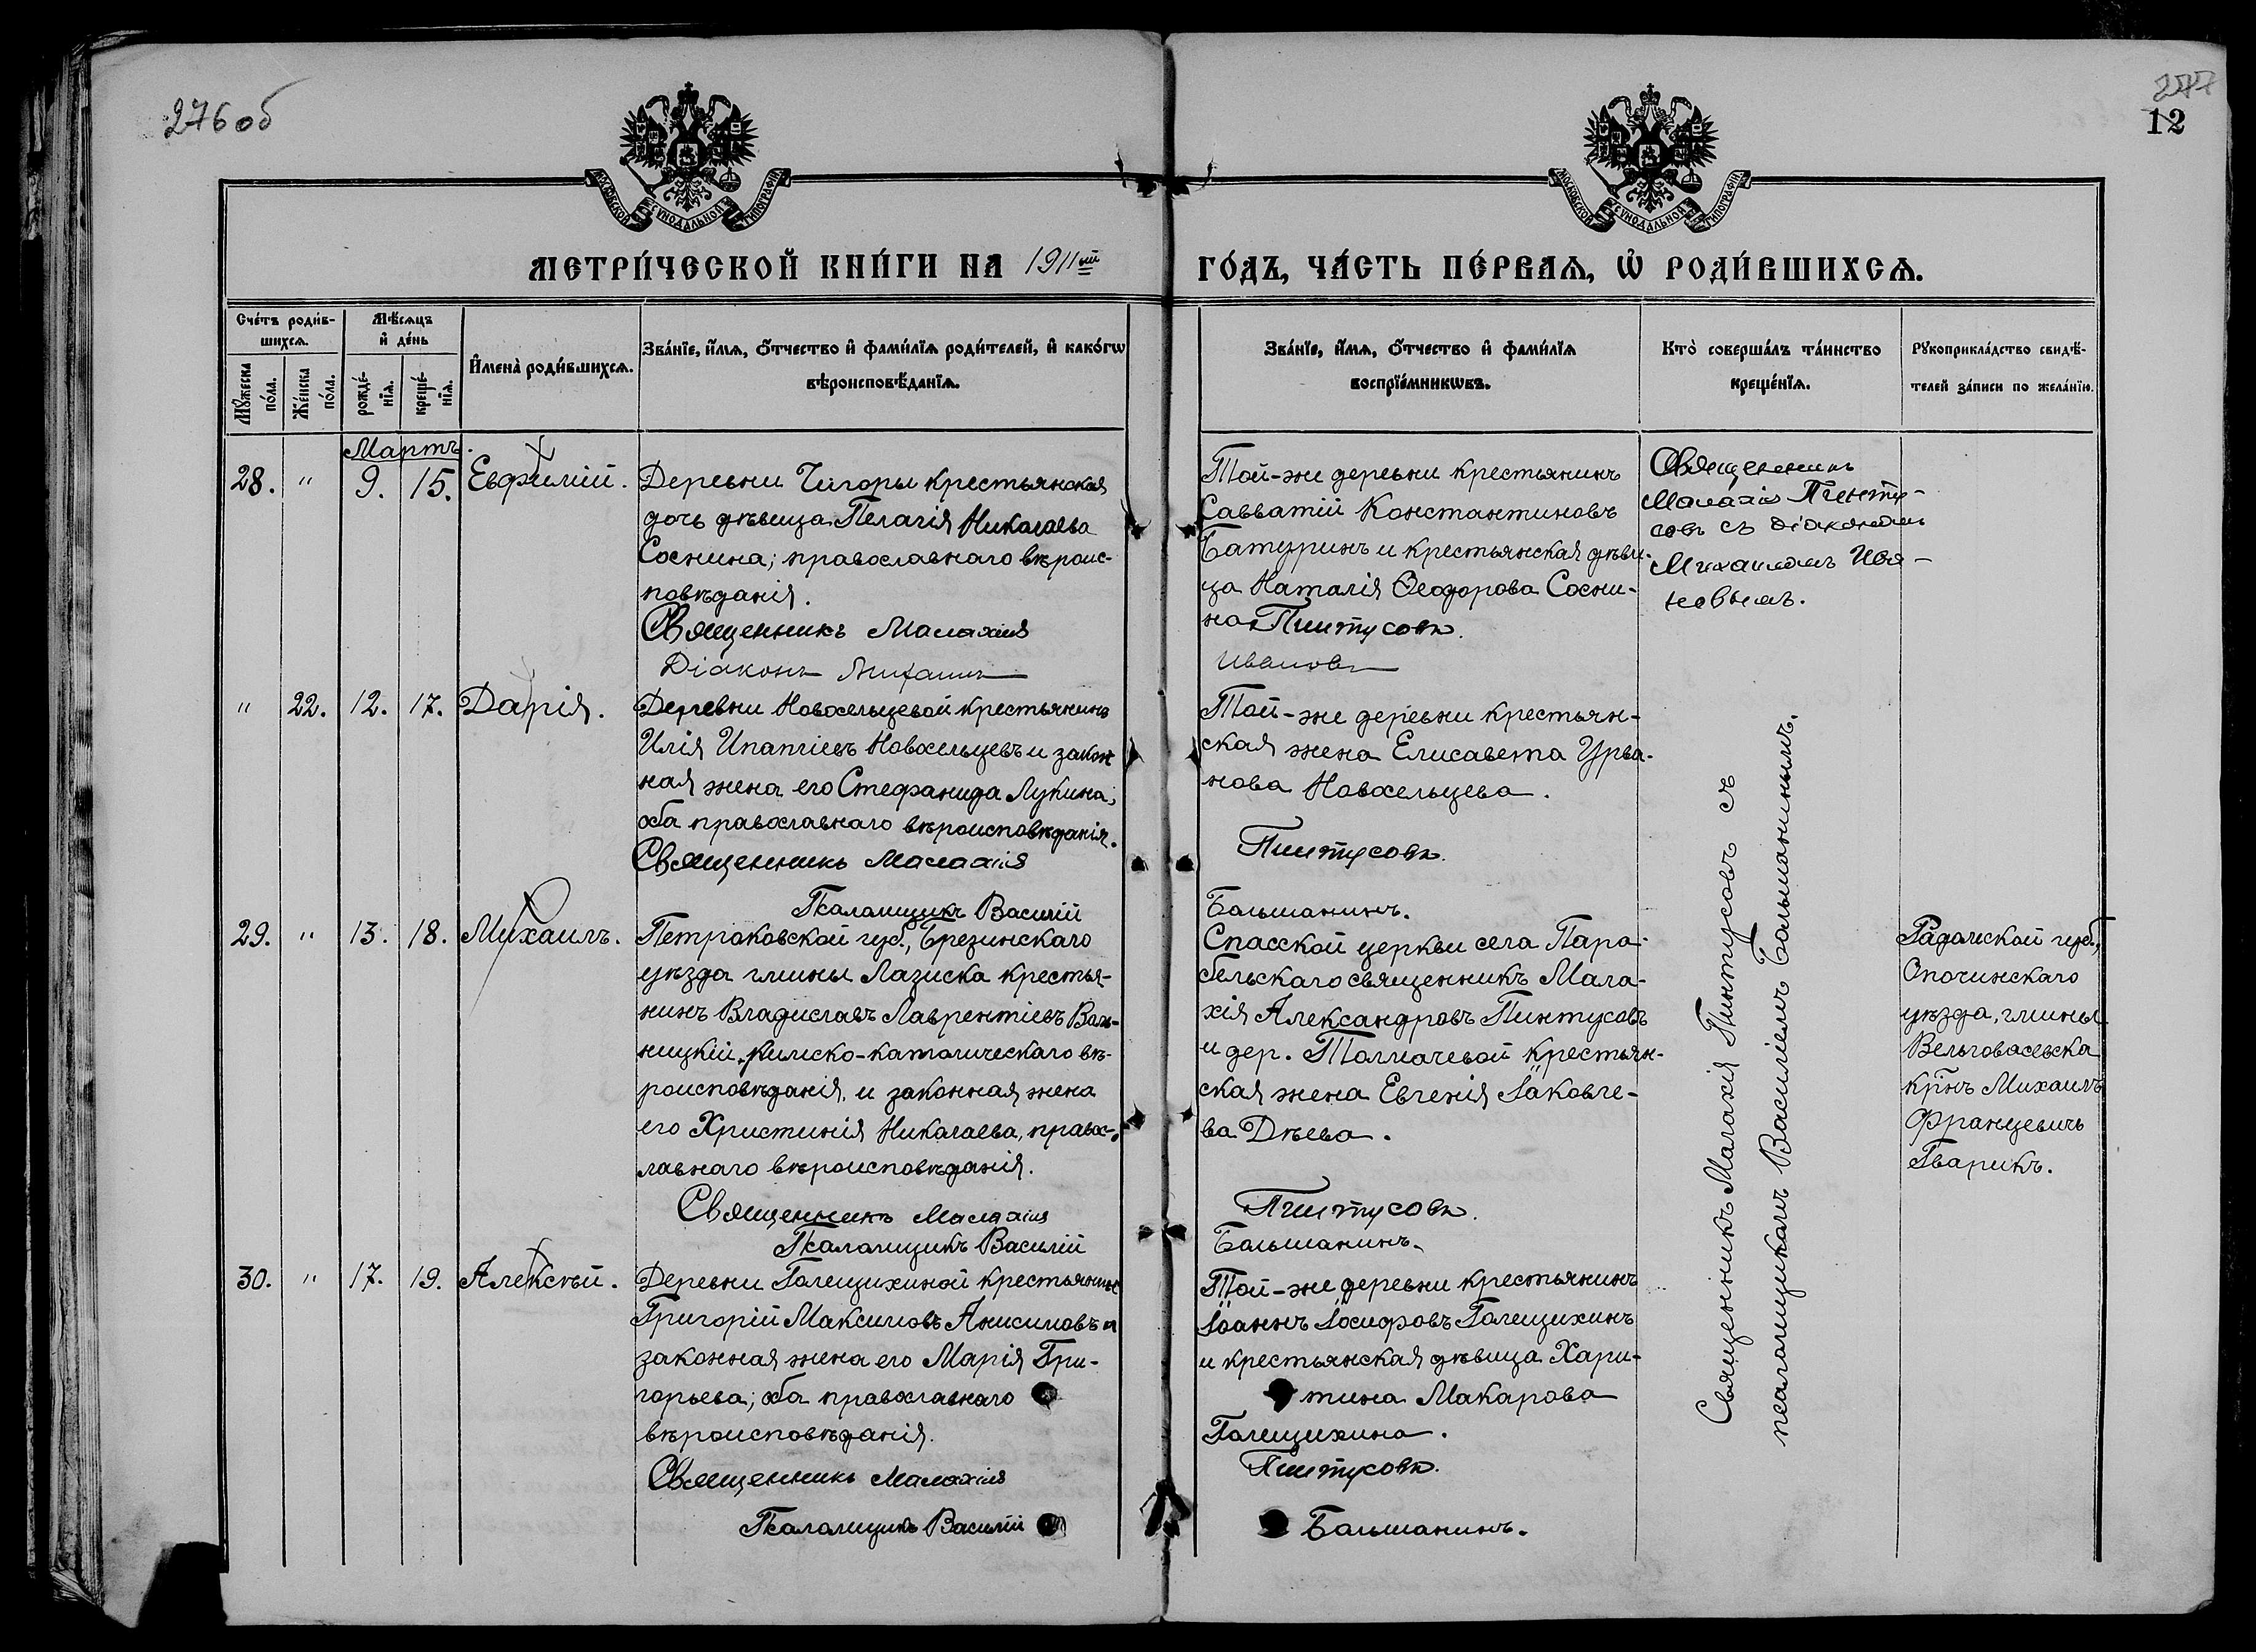 276об
277
12
МОСКОВСКОЙ СѴНОДАЛЬНОЙ ТИПОГРАФІИ
МОСКОВСКОЙ СѴНОДАЛЬНОЙ ТИПОГРАФІИ
МЕТРИ́ЧЕСКОЙ КНИ́ГИ НА 1911ый ГО́ДЪ, ЧА́СТЬ ПЕ́РВАѦ, Ѡ҆ РОДИ́ВШИХСѦ.
Сче́тъ роди́в-
шихсѧ.
Мꙋ́жеска по́ла.
Же́нска по́ла.
Мѣ́сѧцъ
и҆ де́нь
рожде́-
нїѧ.
креще́-
нїѧ.
И҆мена̀ роди́вшихсѧ.
Зва́нїе, и҆́мѧ, о҆́тчество и҆ фами́лїѧ роди́телей, и҆ како́гѡ
вѣроисповѣ́данїѧ.
Зва́нїе, и҆́мѧ, о҆́тчество и҆ фами́лїѧ
воспрїе́мникѡвъ.
Кто̀ соверша́лъ та́инство
креще́нїѧ.
Рꙋкоприкла́дство свидѣ́-
телей за́писи по жела́нїю.
Мартъ.
28. " 9. 15. Евфимій.
Деревни Чигоры крестьянская
дочь дѣвица Пелагія Николаева
Соснина; православнаго вѣроис-
повѣданія.
Священникъ Малахія
Діаконъ Михаилъ
Той-же деревни крестьянинъ
Савватій Константиновъ
Батуринъ и крестьянская дѣви-
ца Наталія Ѳеодорова Сосни-
на. Пинтусовъ.
Ивановъ
Священникъ
Малахія Пинту-
совъ съ діакономъ
Михаиломъ Ива-
новымъ.
" 22. 12. 17. Дарія.
Деревни Новосельцевой крестьянинъ
Илія Ипатіевъ Новосельцевъ и закон
ная жена его Стефанида Лукина;
оба православнаго вѣроисповѣданія.
Священникъ Малахія
Псаломщикъ Василій
Той-же деревни крестьян-
ская жена Елисавета Урва-
нова Новосельцева.
Пинтусовъ.
Большанинъ.
29. " 13. 18. Михаилъ.
Петроковской губ., Брезинскаго
уѣзда гмины Лазиска крестья-
нинъ Владиславъ Лаврентіевъ Валь-
ницкій, римско-католическаго вѣ-
роисповѣданія, и законная жена
его Христинія Николаева, правос-
лавнаго вѣроисповѣданія.
Священникъ Малахія
Псаломщикъ Василій
Спасской церкви села Пара-
бельскаго священникъ Мала-
хія Александровъ Пинтусовъ
и дер. Толмачевой крестьян-
ская жена Евгенія Іаковле-
ва Дѣева.
Пинтусовъ.
Большанинъ.
Радомской губ.,
Опочинскаго
уѣзда, гмины
Вельговасевска
кр̃нъ Михаилъ
Францевичъ
Гварикъ.
30. " 17. 19. Алексѣй.
Деревни Голещихиной крестьянинъ
Григорій Максимовъ Анисимовъ и
законная жена его Марія Гри-
горьева; оба православнаго
вѣроисповѣданія.
Священникъ Малахія
Псаломщикъ Василій
Той-же деревни крестьянинъ
Іоаннъ Іосифовъ Голещихинъ
и крестьянская дѣвица Хари-
тина Макарова
Голещихина.
Пинтусовъ.
Большанинъ.
Священникъ Малахія Пинтусовъ съ
псаломщикомъ Василіемъ Большанинымъ.